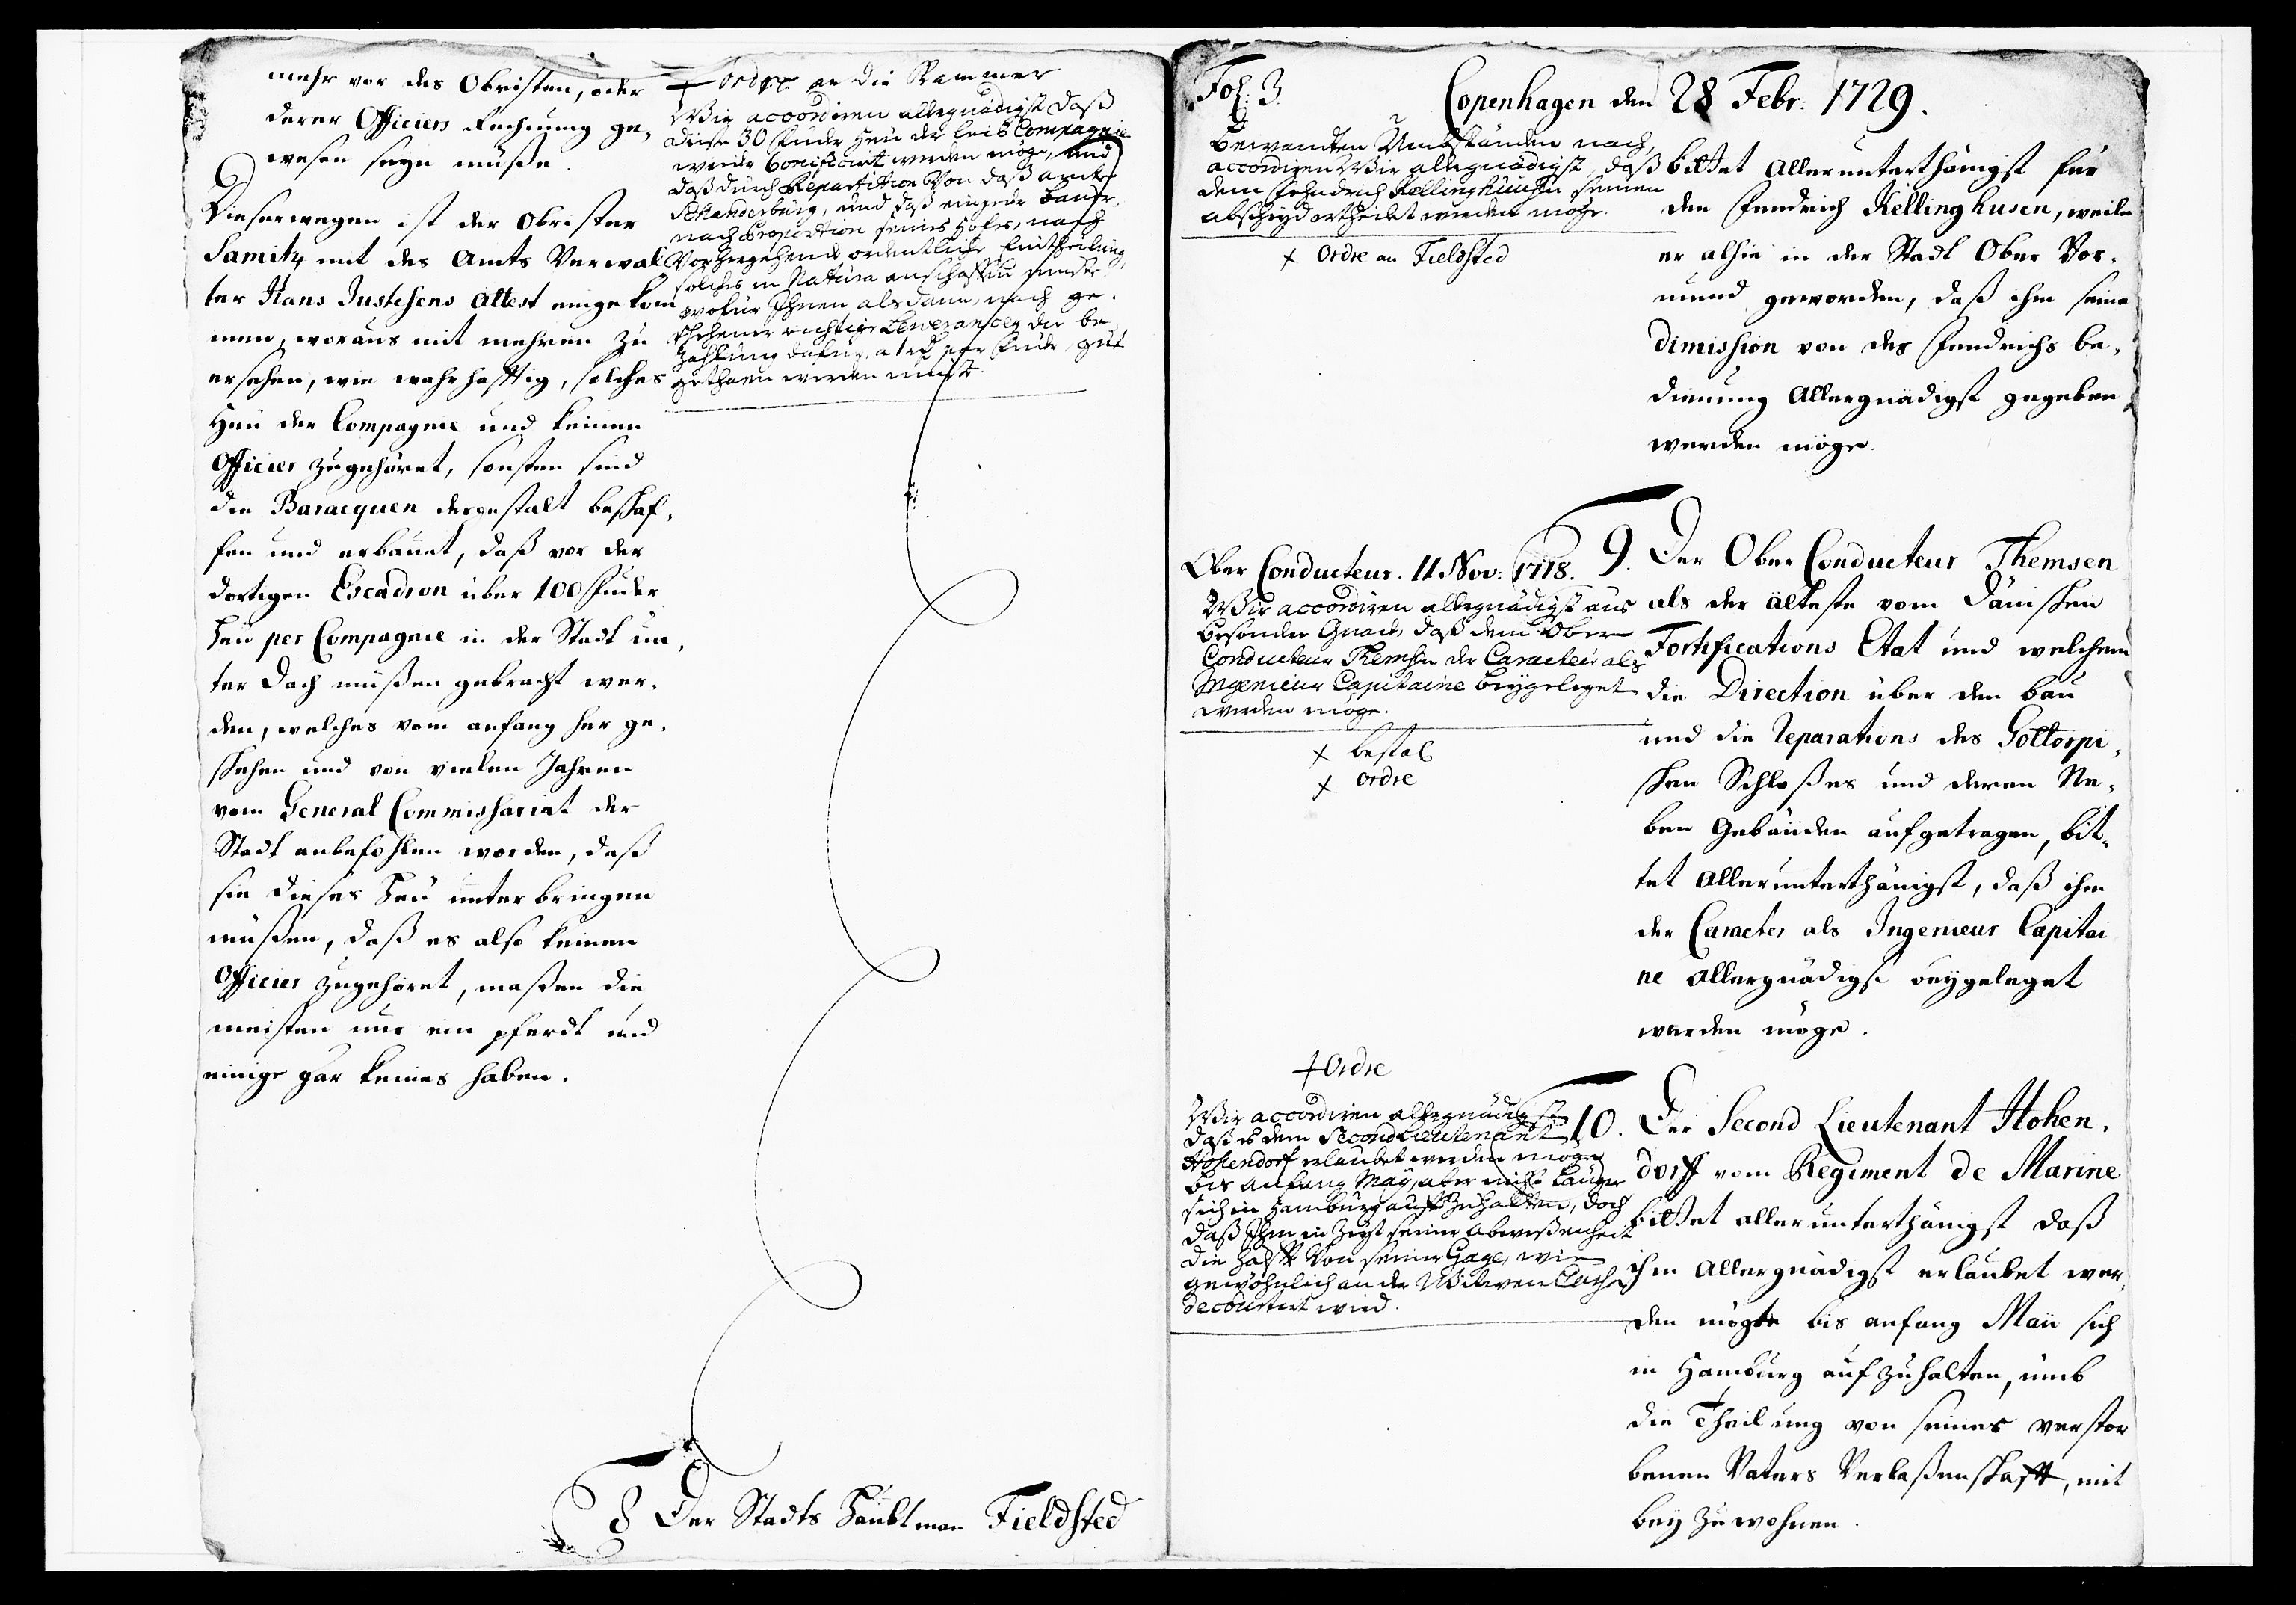 mehr vor des Obristen, oder
derer Officiers Rechnung ge,
wesen seyn müße.
Dieserwegen ist der Obrister
Samitz mit des Amts Verwal
ter Hans Justesens Attest einge kom
men, woraus mit mehren zu
ersehen, wie wahrhafftig, solches
Heu der Compagnie und keinen
Officier zugehöret, sonsten sind
die Baracquen dergestalt beschaf,
fen und erbauet, daß vor der
dortigen Escadron über 100 Fuder
Heu per Compagnie in der Stadt un,
ter Dach müßen gebracht wer,
den, welches vom anfang her ge,
schehen und von vielen Jahren
vom General Commissariat der
Stadt anbefohlen worden, daß
sie dieses Heu unter bringen
müßen, daß es also keinen
Officier zugehöret, maßen die
meisten nur ein pferdt und
einige gar keines haben.
+ Ordre an die Cammer
Wir accordiren allergnädigst daß
diese 30 Fuder Heu der Leib Compagnie
wieder bonificirt werden möge, und
daß durch Repartition von daß amt
Schanderburg, und daß ein jeder Bauer,
nach Proportion seines Hofes, nach
vorhergehende ordentliche Eintheilung,
solches in Natura anschaffen müste
wofür Ihnen alsdann, nach ge,
schehener richtige Leverancen die be,
zahlung dafür, a 1 rd per Fuder gut
gethan werden müste.
8 Der Stadts Haubtman Fieldsted
Fol: 3.
Copenhagen den 28 Febr: 1729.
Bewandten Umbständen nach,
accordiren Wir allergnädigst, daß
dem Fehndrich Kellinghusen seinen
abscheyd ertheilet werden möge.
+ Ordre an Fieldsted
bittet Allerunterthänigst für
den Fendrich Kellinghusen, weile
er alhie in der Stadt Ober Vor,
mund geworden, daß ihm seine
Dimission von des Fendrichs be,
dienung Allergnädigst gegeben
werden möge.
Ober Conducteur. 11 Nov: 1718.
Wir accordiren allergnädigst aus
besonder Gnade, daß dem Ober
Conducteur Themsen der Caracteir als
Ingenieur Capitaine beygeleget
werden möge.
+ bestal
+ ordre
9. Der Ober Conducteur Themsen
als der älteste vom Dänischen
Fortifications Etat und welchem
die Direction über den bau
und die Reparations des Gottorpi,
schen Schloßes und deren Ne,
ben Gebäuden aufgetragen, bit,
tet Allerunterthänigst, daß ihm
der Caracter als Ingenieur Capitai
ne Allergnädigst beygeleget
werden möge.
+ Ordre
Wir accordiren allergnädigst
daß es dem Second Lieutenant
Hohendorf erlaubet werden möge
bis anfang May, aber nicht länger
sich in Hamburg aufzuhalten, doch
daß Ihm in Zeyt seiner abweßenheit
die helfte von seiner Gage, wie
gewöhnlich an der Witwen Casse
decourtirt wird.
10. Der Second Lieutenant Hohen,
dorff vom Regiment de Marine
bittet allerunterthänigst daß
ihm Allergnädigst erlaubet wer,
den mögte bis anfang Maii sich
in Hamburg aufzuhalten, umb
die Theilung von seines verstor
benen Vaters Verlaßenschafft, mit
bey zu wohnen.